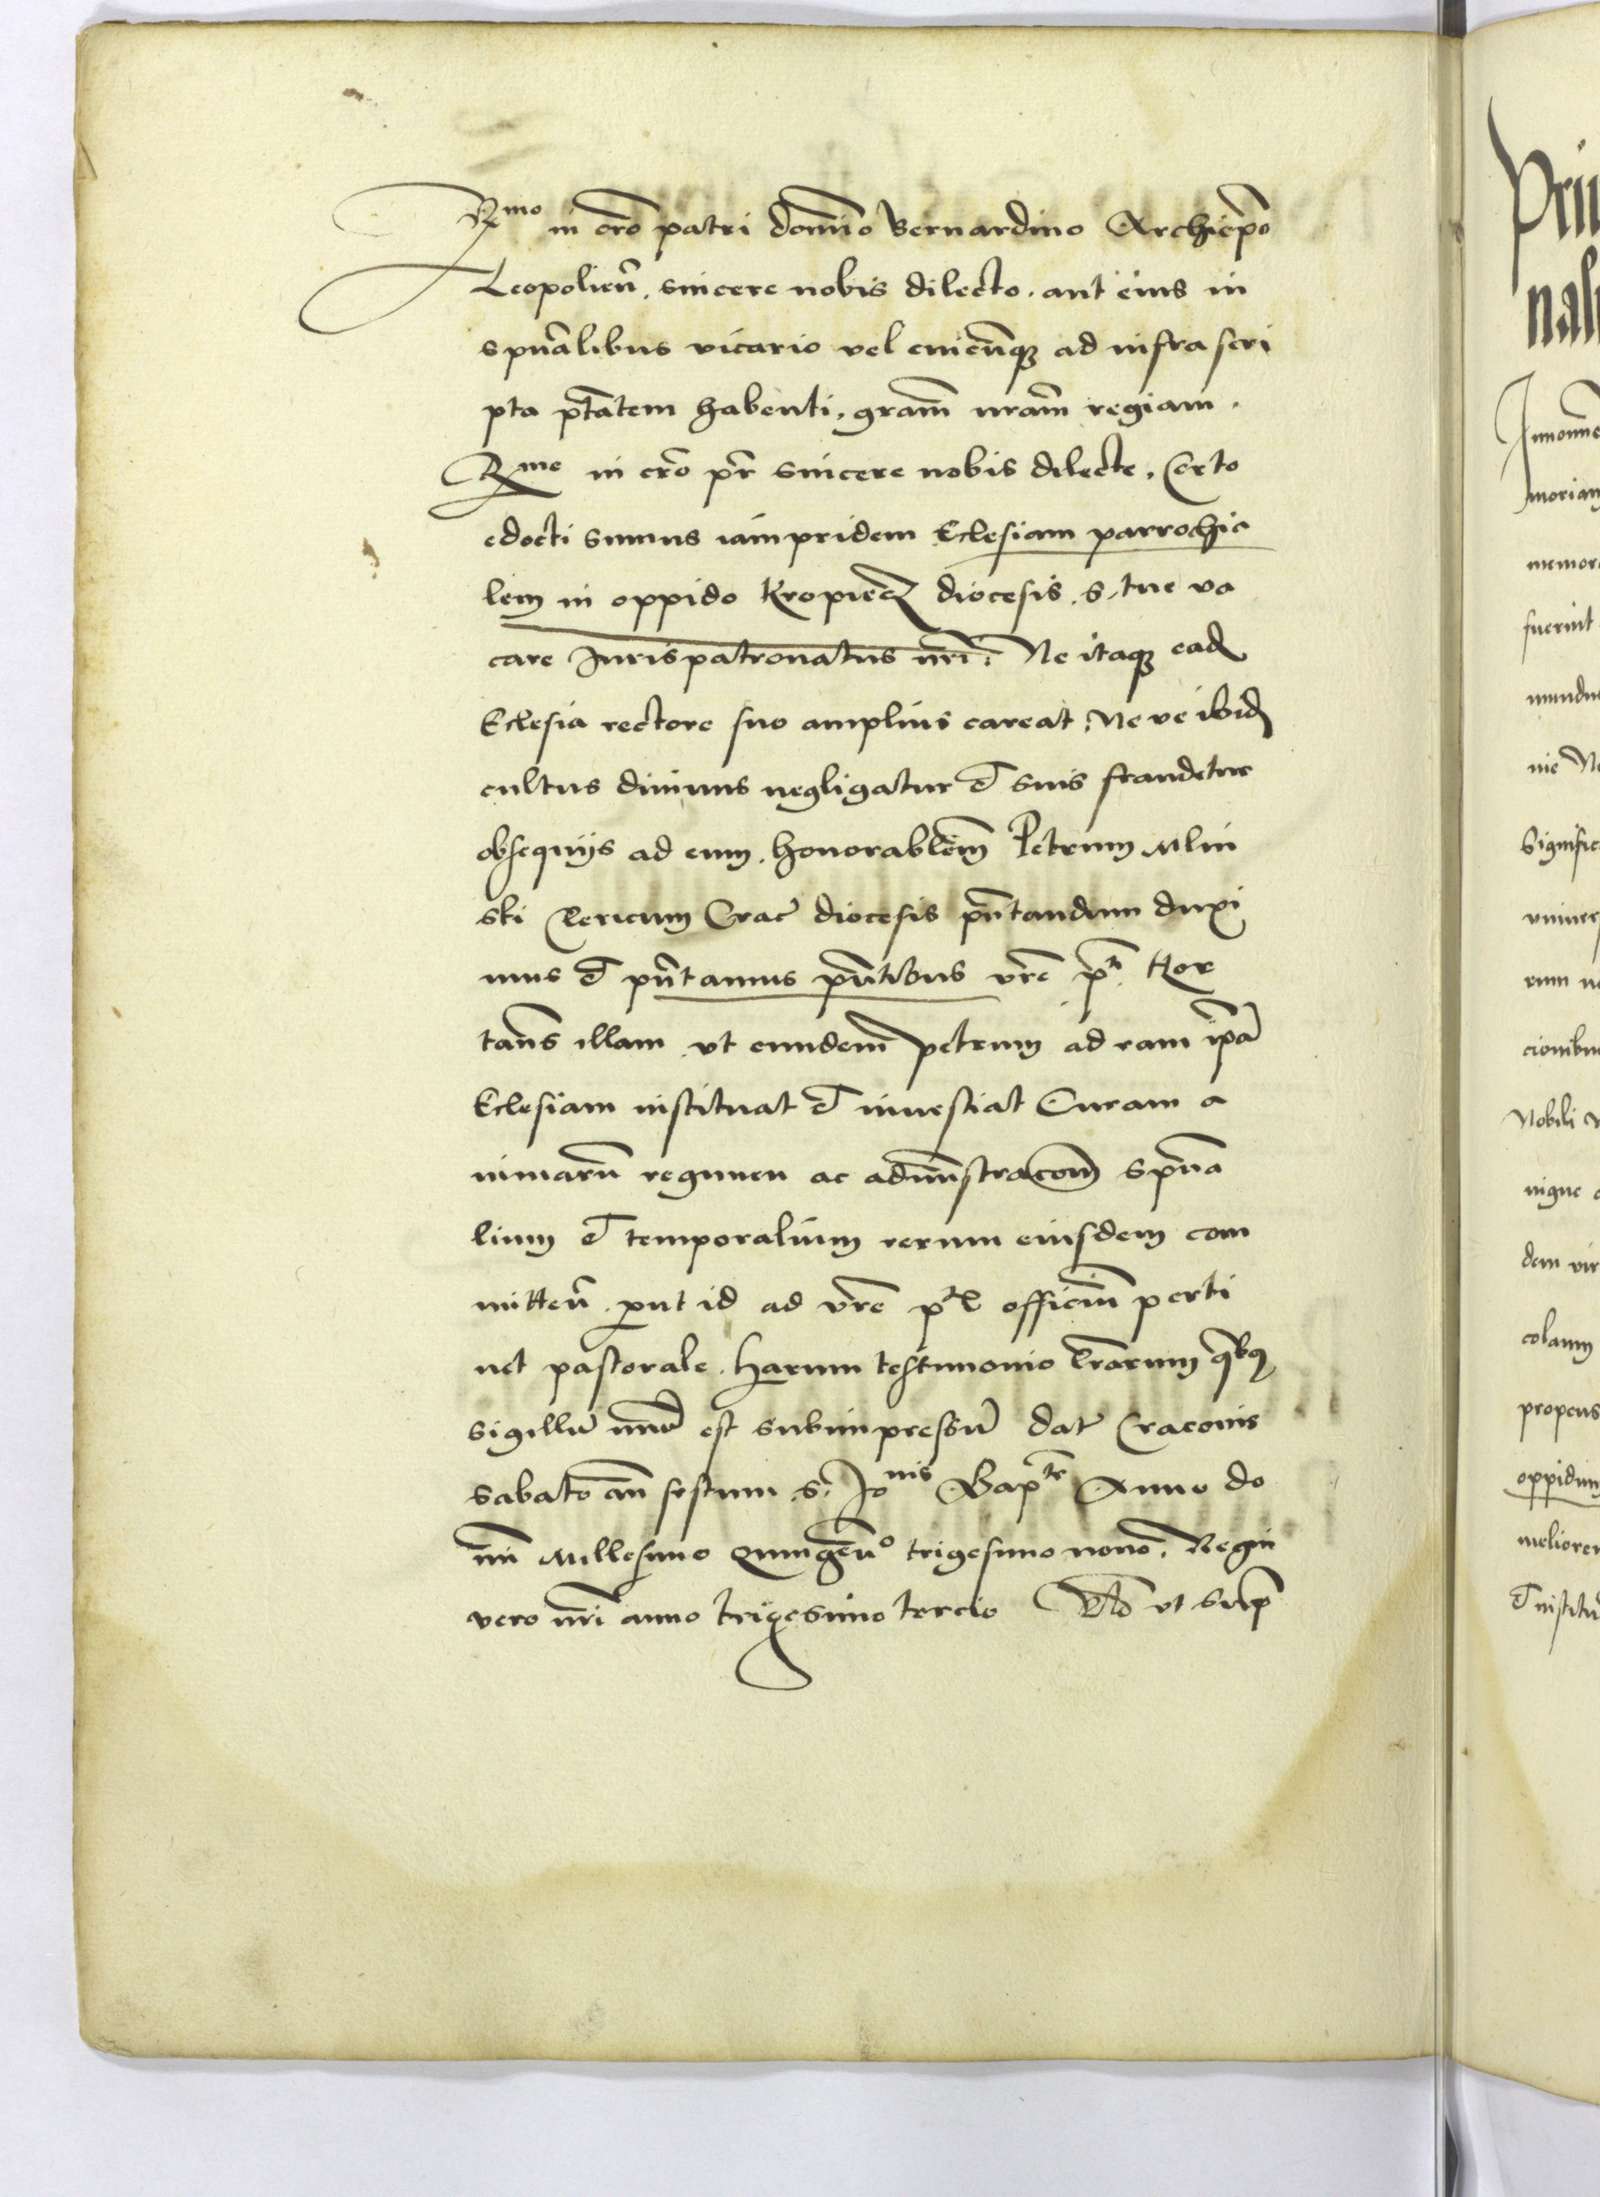 R<sup>mo</sup> in cro patri domino Bernardino Archiepo
Leopolien̄. sincere nobis dilecto. aut eius in
spūalibus vicario vel cuicūq3 ad infra scri
pta ptātem habenti. gram̄ nram̄ regiam.
R<sup>me</sup> in cro pr̄ sincere nobis dilecte. Certo
edocti sumus iam pridem Eclesiam parrochia
lem in oppido Kropiecz diocesis. s. tue va
care Jurispatronatus nri. Ne itaq3 ead
Eclesia rectore suo amplius careat. Ne ve ibid
cultus diuinus negligatur et suis fraudetur
obsequijs ad eum. honorablem̄ Petrum Mlin
ski Clericum Crac̄ diocesis pn̄tandum duxi
mus et pn̄tamus pn̄tibus vrē p<sup>ti</sup>. Hor
tan̄s illam ut eundem Petrum ad eam ipā
Eclesiam instituat et inuestiat Curam a
nimarū regimen ac adm̄straconē spūa
lium et temporalium rerum eiusdem com
mitten̄. put id ad vrē p<sup>t</sup> officiūm perti
net pastorale. Harum testimonio lr̄arum qbus
sigillū nr̄m est subimpressū dat̄ Cracouie
sabato an̄ festum s. Jo<sup>nis</sup> Bap<sup>te</sup> Anno do
mi Millesimo Quingen̄<sup>o</sup> trigesimo nono. Regni
vero nr̄i anno trigesimo tercio ut sup

Prii
nali
Innomine
moriam
memora
fuerint
mundu
nie Ne
Significa
vniuer
eum ne
cionibu
Nobili
nique
dem vir
colaum
propens
oppidum
meliorem
et institu